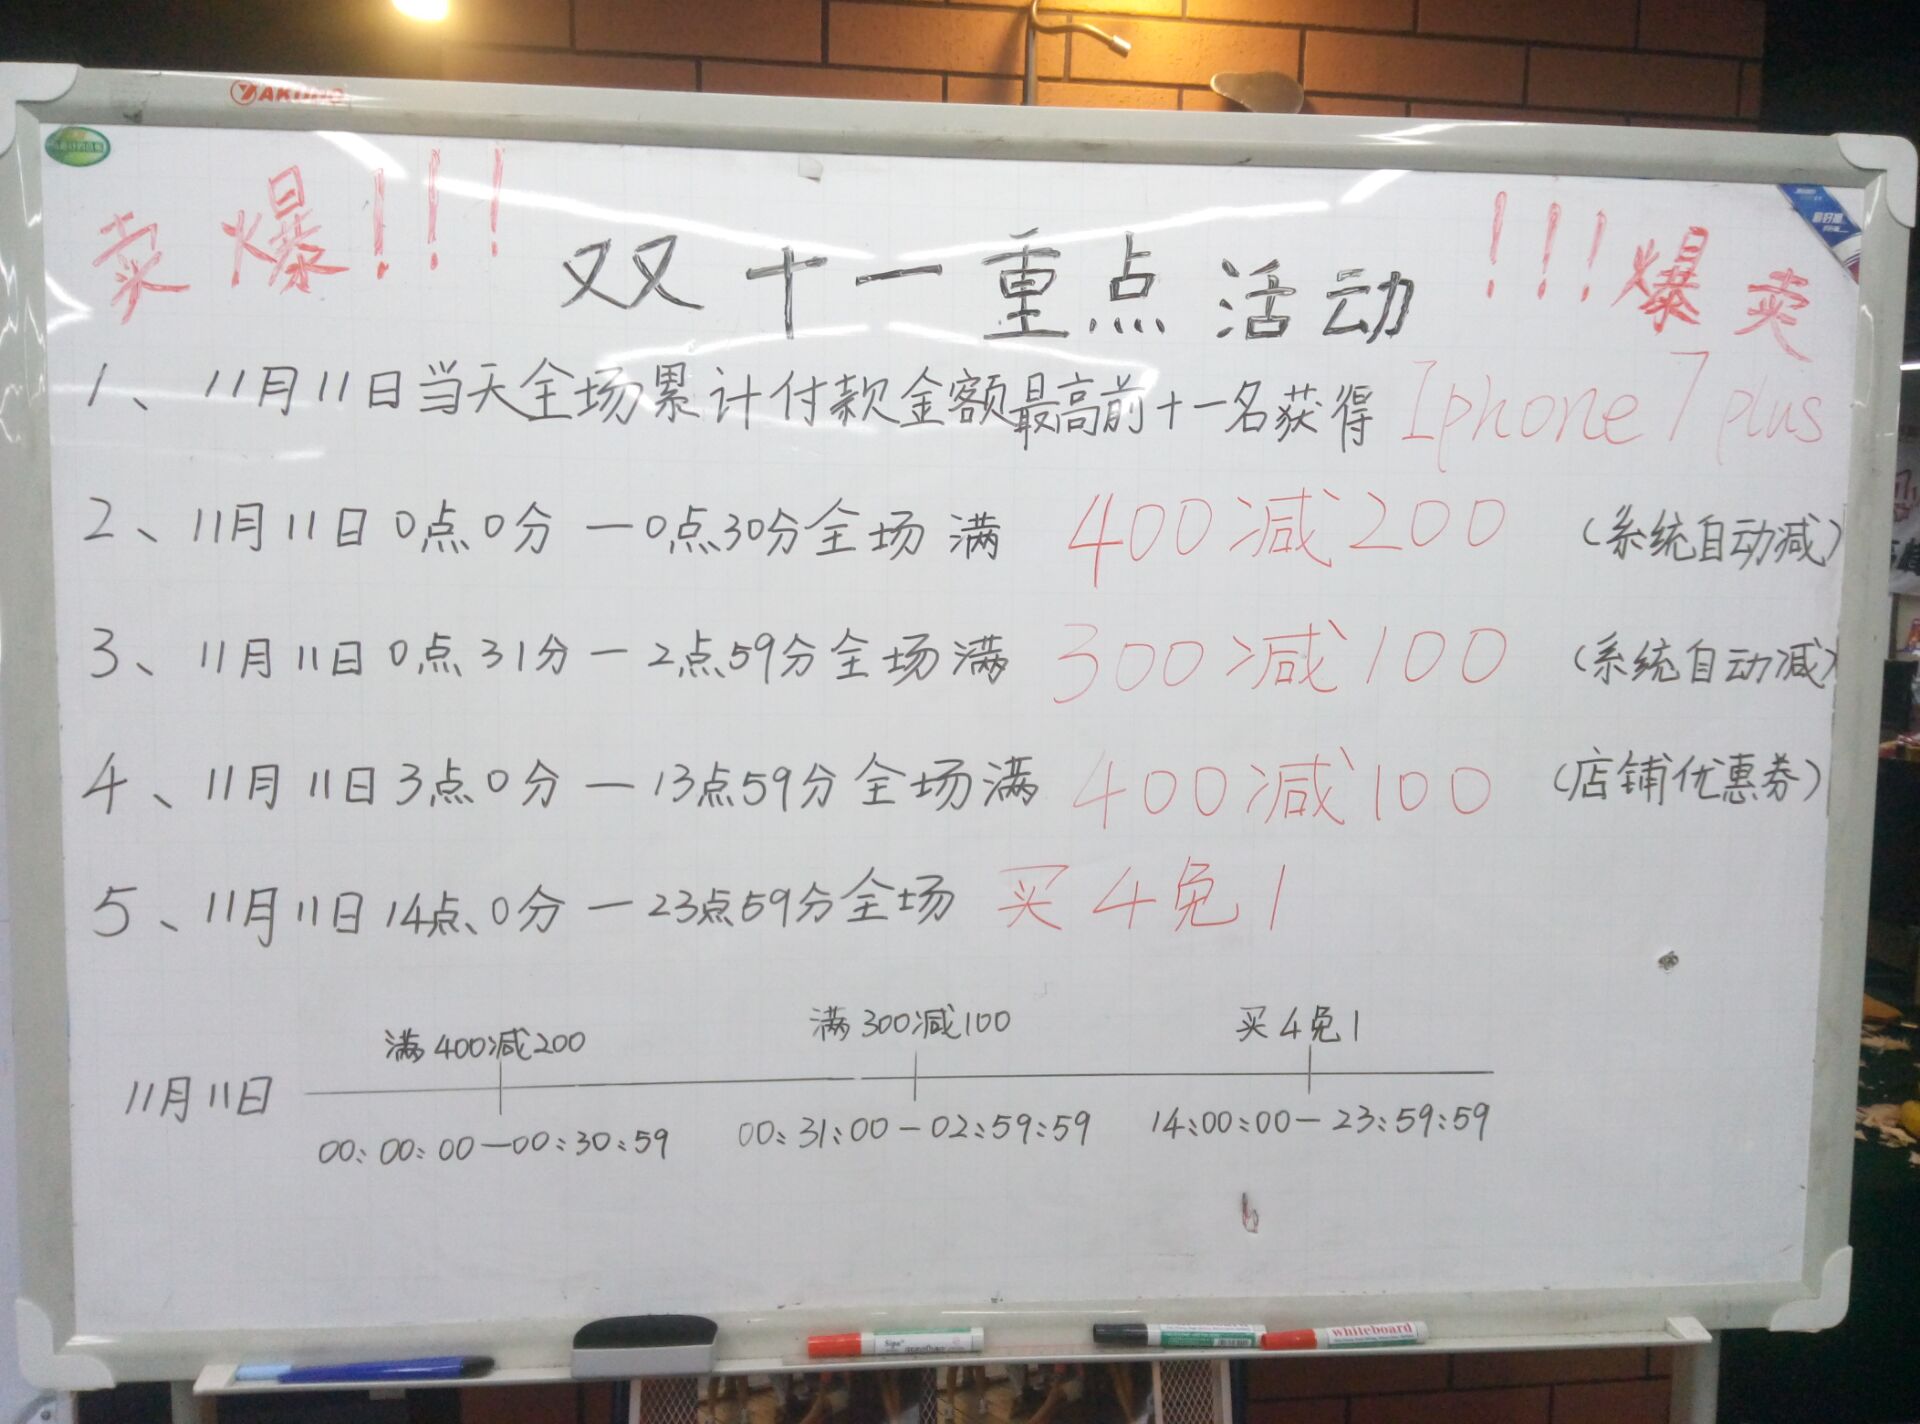 YAKUNG
卖爆!!!
双十一重点活动
!!!爆卖
1、11月11日当天全场累计付款金额最高前十一名获得 Iphone7 plus
2、11月11日0点0分—0点30分全场满 400减200 (系统自动减)
3、11月11日0点31分—2点59分全场满 300减100 (系统自动减)
4、11月11日3点0分—13点59分全场满 400减100 (店铺优惠券)
5、11月11日14点、0分—23点59分全场 买4免1
满400减200 满300减100 买4免1
11月11日
00:00:00—00:30:59 00:31:00—02:59:59 14:00:00—23:59:59
whiteboard